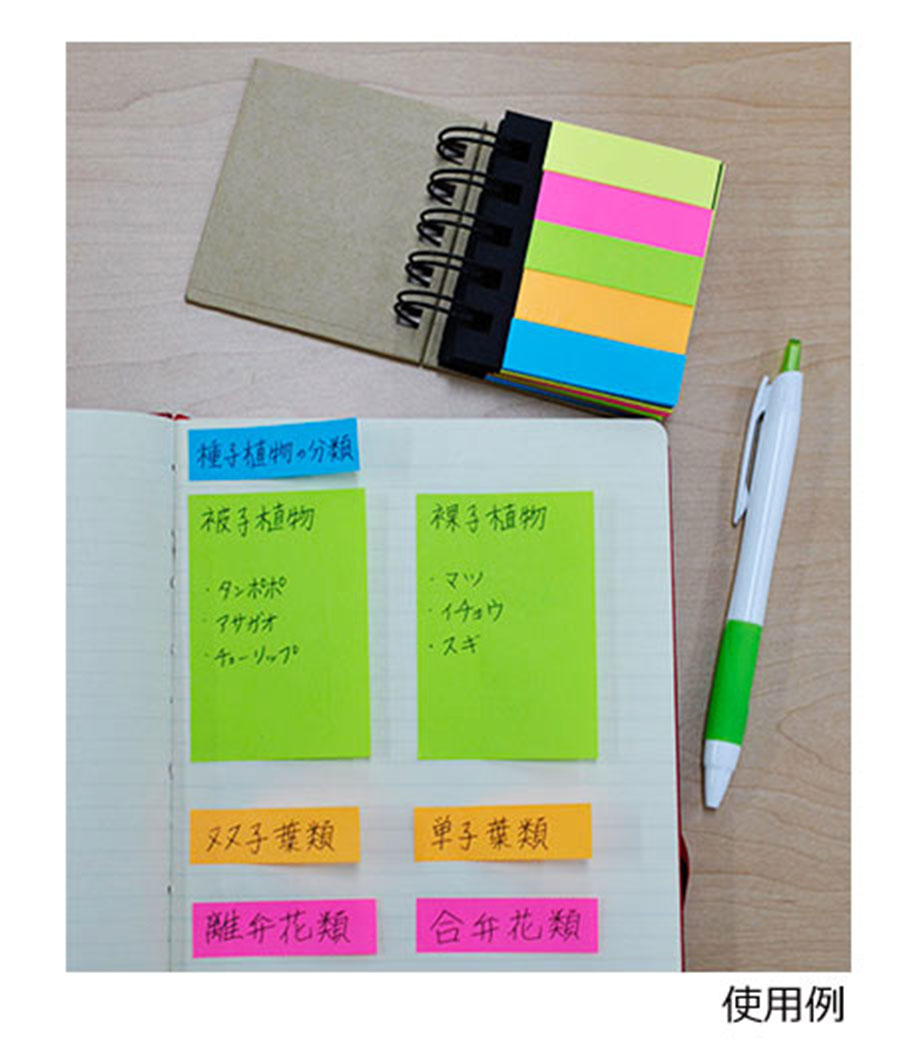 種子植物の分類
被子植物
・タンポポ
・アサガオ
・チューリップ
裸子植物
・マツ
・イチョウ
・スギ
双子葉類
単子葉類
離弁花類
合弁花類
使用例